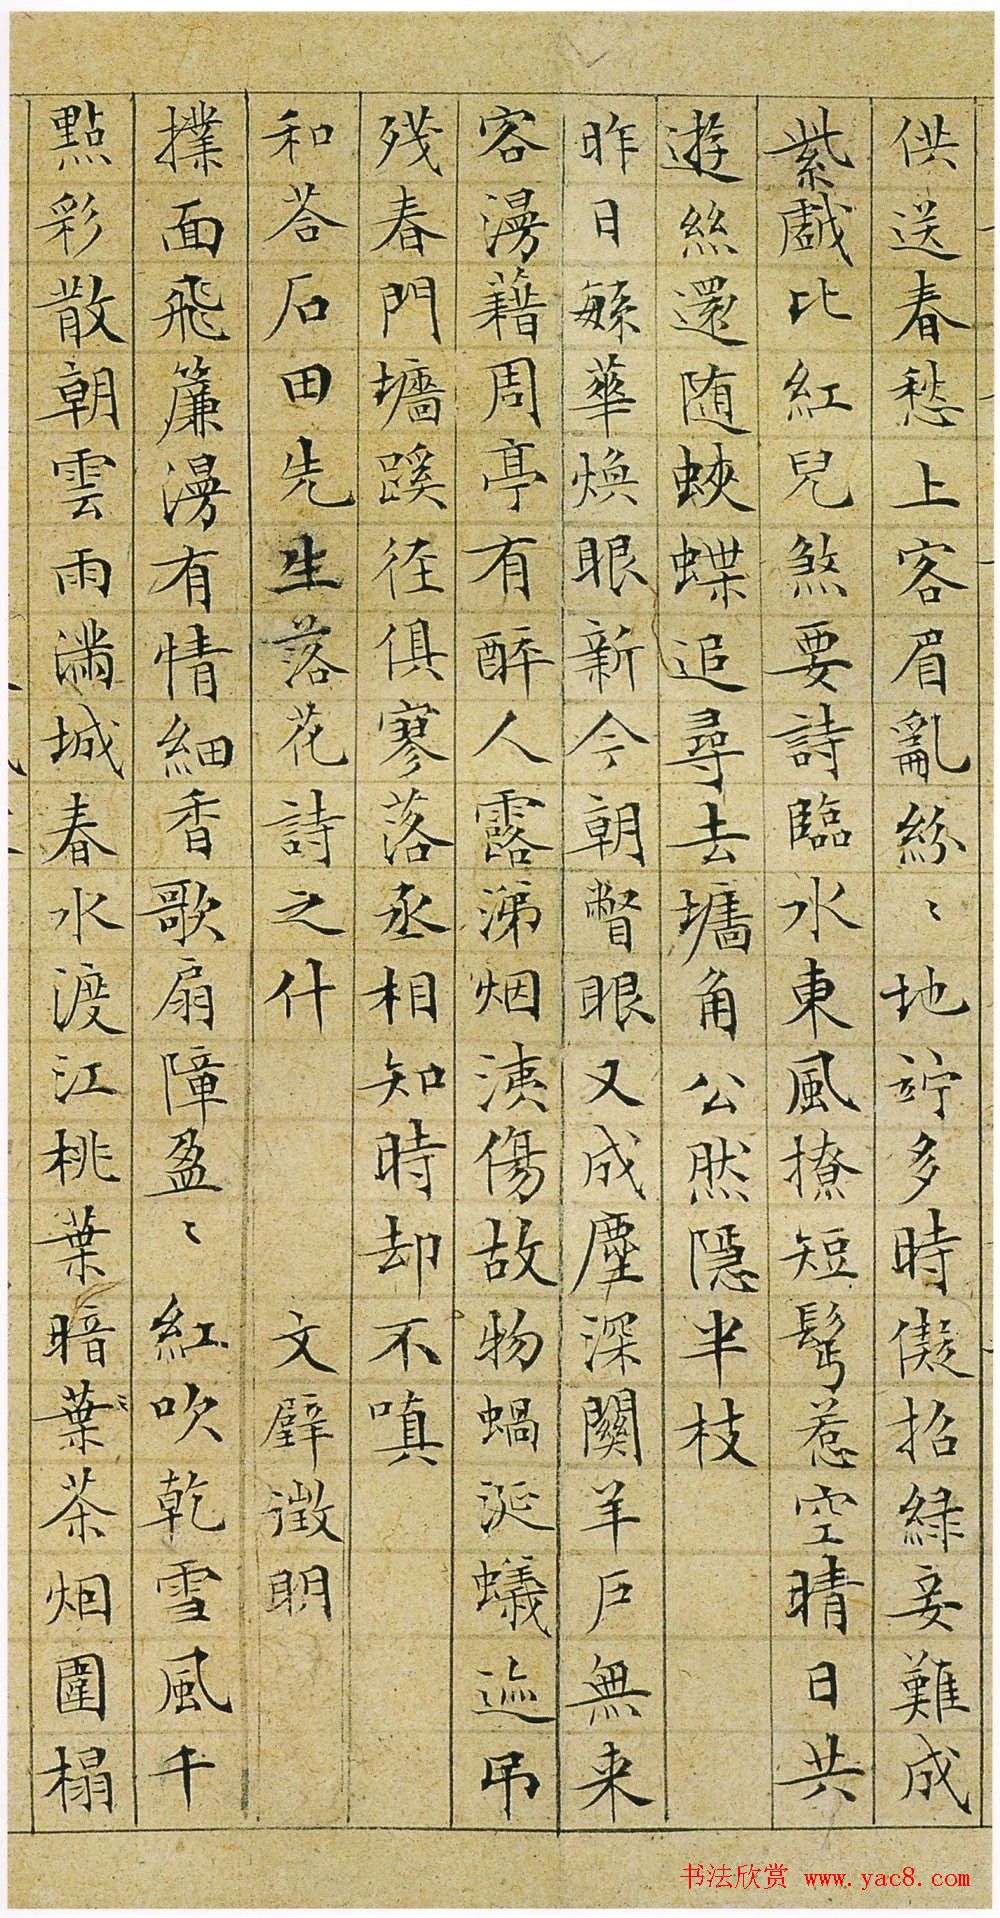 供送春愁上客眉亂紛〻地竚多時儗招緑妾難成
紫戲比紅兒煞要詩臨水東風撩短鬓惹空晴日共
遊絲還随蛺蝶追尋去墻角公然隱半枝
昨日繁華煥眼新今朝瞥眼又成塵深關羊戶無来
客漫藉周亭有醉人露涕烟洟傷故物蝸涎蟻迹吊
殘春門墻蹊徑俱寥落丞相知時却不嗔
和荅石田先生落花詩之什 文璧徵明
撲面飛簾漫有情細香歌扇障盈〻紅吹乾雪風千
點彩散朝雲雨滿城春水渡江桃葉暗葉〻茶烟圍榻
书法欣赏 www.yac8.com